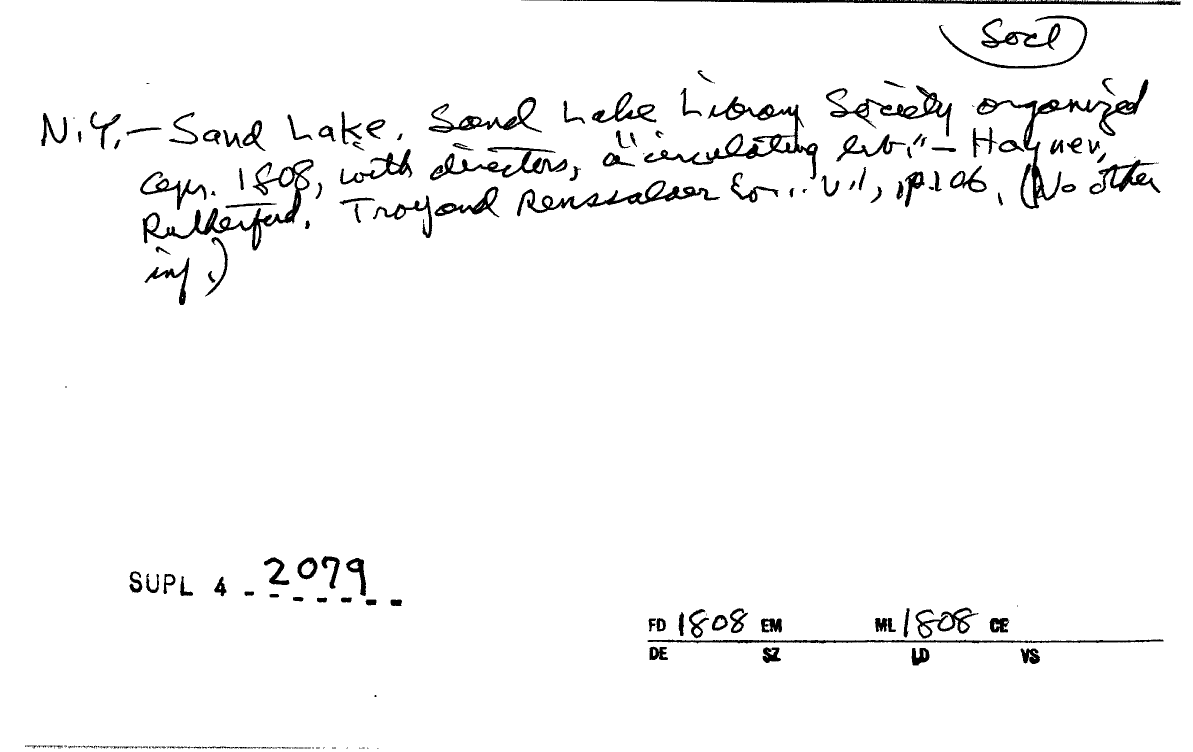 Socl
N.Y.— Sand Lake. Sand Lake Library Society organized
Apr. 1808, with directors, a "circulating lib." — Hayner,
Rutherford. Troy and Renssalaer Co... v.1, p.106. (No other
inf.)
SUPL 4 - 2079
FD 1808 EM ML 1808 CE
DE SZ LD VS